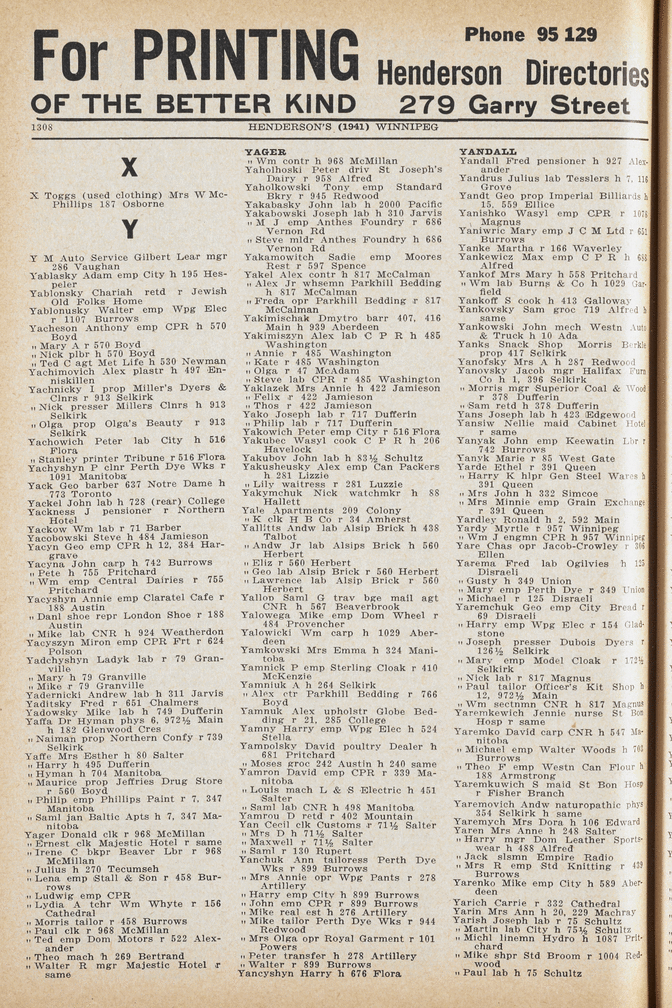 For PRINTING
OF THE BETTER KIND
Phone 95 129
Henderson Directories
279 Garry Street
1308
HENDERSON'S (1941) WINNIPEG
X
X Toggs (used clothing) Mrs W Mc-
Phillips 187 Osborne
Y
Y M Auto Service Gilbert Lear mgr
286 Vaughan
Yablasky Adam emp City h 195 Hes-
peler
Yablonsky Chariah retd r Jewish
Old Folks Home
Yablonusky Walter emp Wpg Elec
r 1107 Burrows
Yacheson Anthony emp CPR h 570
Boyd
„ Mary A r 570 Boyd
„ Nick plbr h 570 Boyd
„ Ted C agt Met Life h 530 Newman
Yachimovich Alex plastr h 497 En-
niskillen
Yachnicky I prop Miller's Dyers &
Clnrs r 913 Selkirk
„ Nick presser Millers Clnrs h 913
Selkirk
„ Olga prop Olga's Beauty r 913
Selkirk
Yachowich Peter lab City h 516
Flora
„ Stanley printer Tribune r 516 Flora
Yachyshyn P clnr Perth Dye Wks r
1091 Manitoba
Yack Geo barber 637 Notre Dame h
773 Toronto
Yackel John lab h 728 (rear) College
Yackness J pensioner r Northern
Hotel
Yackow Wm lab r 71 Barber
Yacobowski Steve h 484 Jamieson
Yacyn Geo emp CPR h 12, 384 Har-
grave
Yacyna John carp h 742 Burrows
„ Pete h 755 Pritchard
„ Wm emp Central Dairies r 755
Pritchard
Yacyshyn Annie emp Claratel Cafe r
188 Austin
„ Danl shoe repr London Shoe r 188
Austin
„ Mike lab CNR h 924 Weatherdon
Yacyszyn Miron emp CPR Frt r 624
Polson
Yadchyshyn Ladyk lab r 79 Gran-
ville
„ Mary h 79 Granville
„ Mike r 79 Granville
Yadernicki Andrew lab h 311 Jarvis
Yaditsky Fred r 651 Chalmers
Yadowsky Mike lab h 749 Dufferin
Yaffa Dr Hyman phys 6, 972½ Main
h 182 Glenwood Cres
„ Naiman prop Northern Confy r 739
Selkirk
Yaffe Mrs Esther h 80 Salter
„ Harry h 495 Dufferin
„ Hyman h 704 Manitoba
„ Maurice prop Jeffries Drug Store
r 560 Boyd
„ Philip emp Phillips Paint r 7, 347
Manitoba
„ Saml jan Baltic Apts h 7, 347 Ma-
nitoba
Yager Donald clk r 968 McMillan
„ Ernest clk Majestic Hotel r same
„ Irene C bkpr Beaver Lbr r 968
McMillan
„ Julius h 270 Tecumseh
„ Lena emp Stall & Son r 458 Bur-
rows
„ Ludwig emp CPR
„ Lydia A tchr Wm Whyte r 156
Cathedral
„ Morris tailor r 458 Burrows
„ Paul clk r 968 McMillan
„ Ted emp Dom Motors r 522 Alex-
ander
„ Theo mach h 269 Bertrand
„ Walter R mgr Majestic Hotel r
same
YAGER
„ Wm contr h 968 McMillan
Yaholhoski Peter driv St Joseph's
Dairy r 958 Alfred
Yaholkowski Tony emp Standard
Bkry r 945 Redwood
Yakabasky John lab h 2000 Pacific
Yakabowski Joseph lab h 310 Jarvis
„ M J emp Anthes Foundry r 686
Vernon Rd
„ Steve mldr Anthes Foundry h 686
Vernon Rd
Yakamowitch Sadie emp Moores
Rest r 597 Spence
Yakel Alex contr h 817 McCalman
„ Alex Jr whsemn Parkhill Bedding
h 817 McCalman
„ Freda opr Parkhill Bedding r 817
McCalman
Yakimischak Dmytro barr 407, 416
Main h 939 Aberdeen
Yakimiszyn Alex lab C P R h 485
Washington
„ Annie r 485 Washington
„ Kate r 485 Washington
„ Olga r 47 McAdam
„ Steve lab CPR r 485 Washington
Yaklazek Mrs Annie h 422 Jamieson
„ Felix r 422 Jamieson
„ Thos r 422 Jamieson
Yako Joseph lab r 717 Dufferin
„ Philip lab r 717 Dufferin
Yakowich Peter emp City r 516 Flora
Yakubec Wasyl cook C P R h 206
Havelock
Yakubov John lab h 83½ Schultz
Yakusheusky Alex emp Can Packers
h 281 Lizzie
„ Lily waitress r 281 Luzzie
Yakymchuk Nick watchmkr h 88
Hallett
Yale Apartments 209 Colony
„ K clk H B Co r 34 Amherst
Yallitts Andw lab Alsip Brick h 438
Talbot
„ Andw Jr lab Alsips Brick h 560
Herbert
„ Eliz r 560 Herbert
„ Geo lab Alsip Brick r 560 Herbert
„ Lawrence lab Alsip Brick r 560
Herbert
Yallop Saml G trav bge mail agt
CNR h 567 Beaverbrook
Yalowega Mike emp Dom Wheel r
484 Provencher
Yalowicki Wm carp h 1029 Aber-
deen
Yamkowski Mrs Emma h 324 Mani-
toba
Yamnick P emp Sterling Cloak r 410
McKenzie
Yamniuk A h 264 Selkirk
„ Alex ctr Parkhill Bedding r 766
Boyd
Yamnuk Alex upholstr Globe Bed-
ding r 21, 285 College
Yamny Harry emp Wpg Elec h 524
Stella
Yampolsky David poultry Dealer h
681 Pritchard
„ Moses groc 242 Austin h 240 same
Yamron David emp CPR r 339 Ma-
nitoba
„ Louis mach L & S Electric h 451
Salter
„ Saml lab CNR h 498 Manitoba
Yamrou D retd r 402 Mountain
Yan Cecil clk Customs r 71½ Salter
„ Mrs D h 71½ Salter
„ Maxwell r 71½ Salter
„ Saml r 130 Rupert
Yanchuk Ann tailoress Perth Dye
Wks r 899 Burrows
„ Mrs Annie opr Wpg Pants r 278
Artillery
„ Harry emp City h 899 Burrows
„ John emp CPR r 899 Burrows
„ Mike real est h 276 Artillery
„ Mike tailor Perth Dye Wks r 944
Redwood
„ Mrs Olga opr Royal Garment r 101
Powers
„ Peter transfer h 278 Artillery
„ Walter r 899 Burrows
Yancyshyn Harry h 676 Flora
YANDALL
Yandall Fred pensioner h 927 Alex-
ander
Yandrus Julius lab Tesslers h 7, 116
Grove
Yandt Geo prop Imperial Billiards h
15, 559 Ellice
Yanishko Wasyl emp CPR r 1078
Magnus
Yaniwric Mary emp J C M Ltd r 651
Burrows
Yanke Martha r 166 Waverley
Yankewicz Max emp C P R h 688
Alfred
Yankof Mrs Mary h 558 Pritchard
„ Wm lab Burns & Co h 1029 Gar-
field
Yankoff S cook h 413 Galloway
Yankovsky Sam groc 719 Alfred h
same
Yankowski John mech Westn Auto
& Truck h 10 Ada
Yanks Snack Shop Morris Berkie
prop 417 Selkirk
Yanofsky Mrs A h 287 Redwood
Yanovsky Jacob mgr Halifax Furn
Co h 1, 396 Selkirk
„ Morris mgr Superior Coal & Wood
r 378 Dufferin
„ Sam retd h 378 Dufferin
Yans Joseph lab h 423 Edgewood
Yansiw Nellie maid Cabinet Hotel
r same
Yanyak John emp Keewatin Lbr r
742 Burrows
Yanyk Marie r 85 West Gate
Yarde Ethel r 391 Queen
„ Harry K hlpr Gen Steel Wares h
391 Queen
„ Mrs John h 332 Simcoe
„ Mrs Minnie emp Grain Exchange
r 391 Queen
Yardley Ronald h 2, 592 Main
Yardy Myrtle r 957 Winnipeg
„ Wm J engmn CPR h 957 Winnipeg
Yare Chas opr Jacob-Crowley r 306
Ellen
Yarema Fred lab Ogilvies h 125
Disraeli
„ Gusty h 349 Union
„ Mary emp Perth Dye r 349 Union
„ Michael r 125 Disraeli
Yaremchuk Geo emp City Bread r
69 Disraeli
„ Harry emp Wpg Elec r 154 Glad-
stone
„ Joseph presser Dubois Dyers r
126½ Selkirk
„ Mary emp Model Cloak r 172½
Selkirk
„ Nick lab r 817 Magnus
„ Paul tailor Officer's Kit Shop h
12, 972½ Main
„ Wm sectnmn CNR h 817 Magnus
Yaremkewich Jennie nurse St Bon
Hosp r same
Yaremko David carp CNR h 547 Ma-
nitoba
„ Michael emp Walter Woods h 702
Burrows
„ Theo F emp Westn Can Flour h
188 Armstrong
Yaremkuwich S maid St Bon Hosp
r Fisher Branch
Yaremovich Andw naturopathic phys
354 Selkirk h same
Yaremych Mrs Dora h 106 Edward
Yaren Mrs Anne h 248 Salter
„ Harry mgr Dom Leather Sports-
wear h 488 Alfred
„ Jack slsmn Empire Radio
„ Mrs R emp Std Knitting r 439
Burrows
Yarenko Mike emp City h 589 Aber-
deen
Yarich Carrie r 332 Cathedral
Yarin Mrs Ann h 20, 229 Machray
Yarish Joseph lab r 75 Schultz
„ Martin lab City h 75½ Schultz
„ Michl linemn Hydro h 1087 Prit-
chard
„ Mike shpr Std Broom r 1004 Red-
wood
„ Paul lab h 75 Schultz